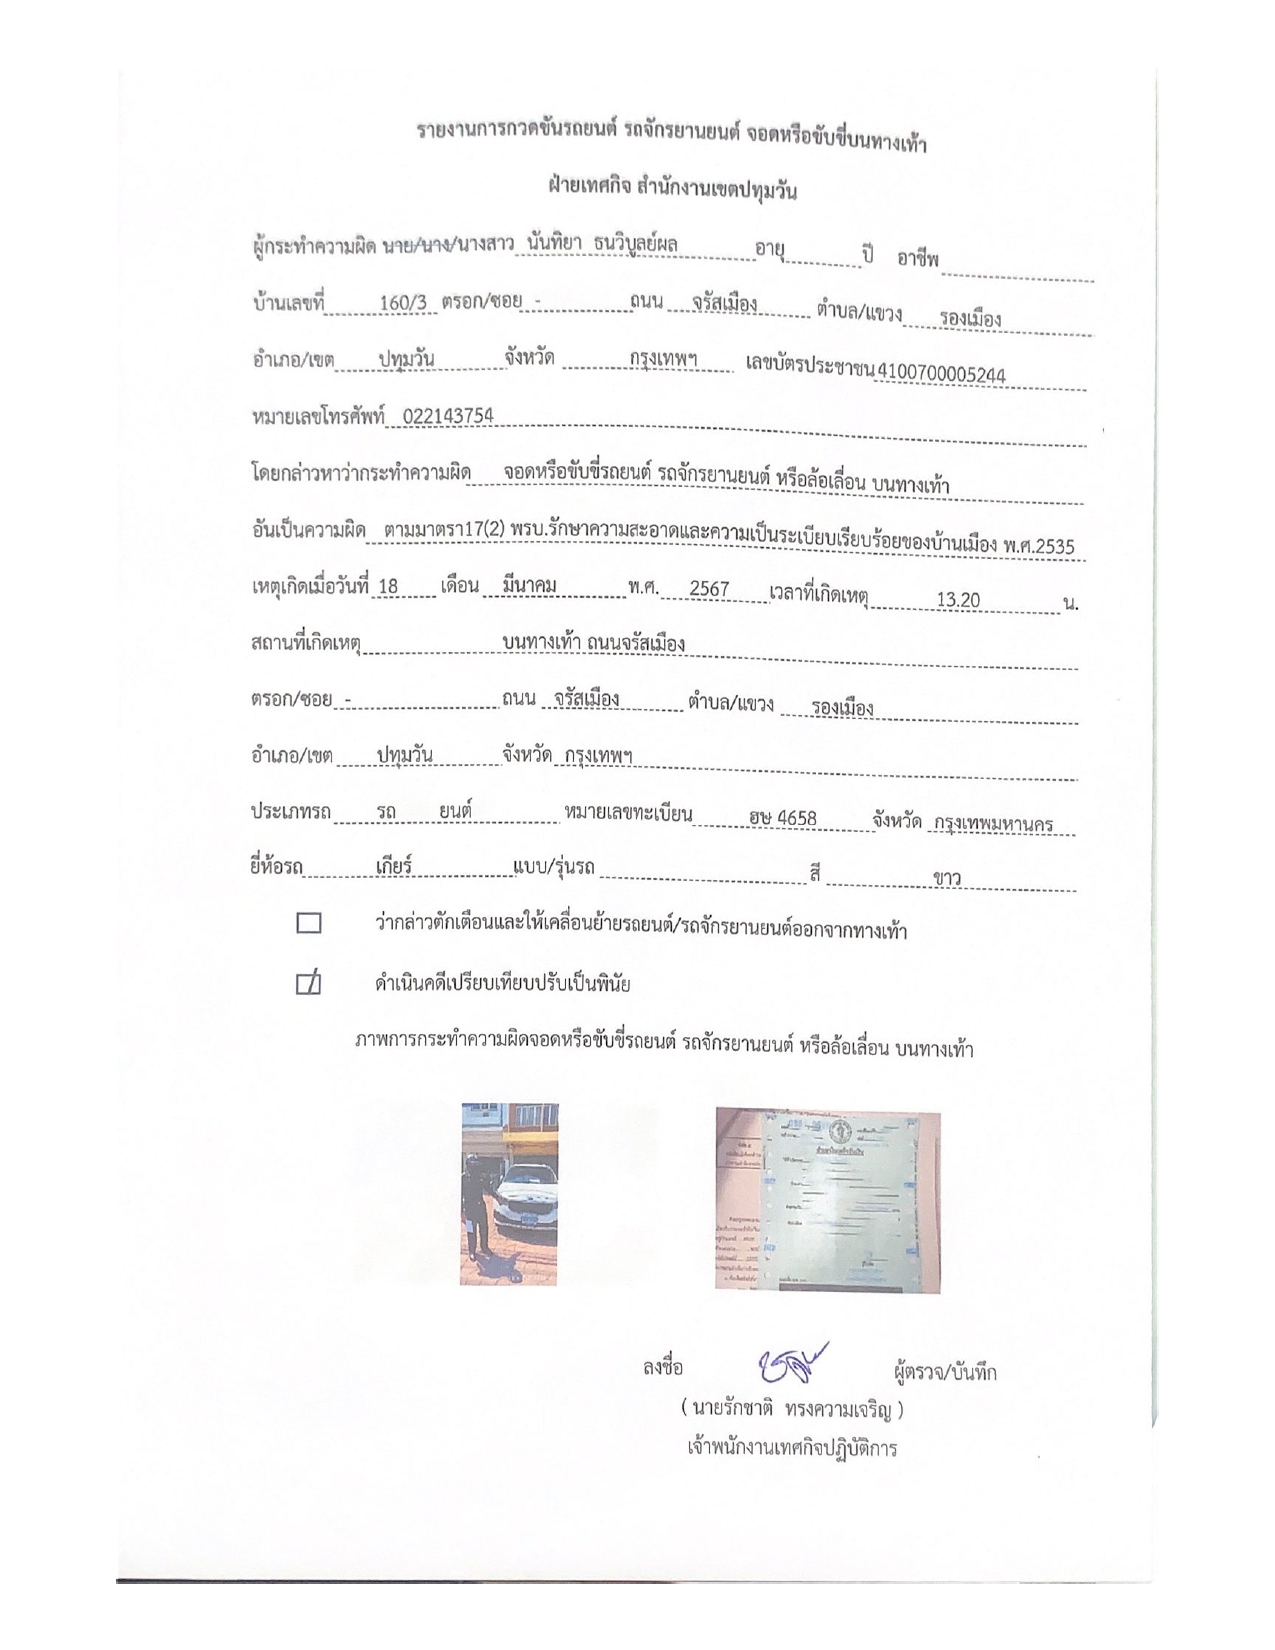 รายงานการกวดขันรถยนต์ รถจักรยานยนต์ จอดหรือขับขี่บนทางเท้า
ฝ่ายเทศกิจ สำนักงานเขตปทุมวัน
ผู้กระทำความผิด นาย/นาง/นางสาว นันทิยา ธนวิบูลย์ผล อายุ ปี อาชีพ
บ้านเลขที่ 160/3 ตรอก/ซอย - ถนน จรัสเมือง ตำบล/แขวง รองเมือง
อำเภอ/เขต ปทุมวัน จังหวัด กรุงเทพฯ เลขบัตรประชาชน 4100700005244
หมายเลขโทรศัพท์ 022143754
โดยกล่าวหาว่ากระทำความผิด จอดหรือขับขี่รถยนต์ รถจักรยานยนต์ หรือล้อเลื่อน บนทางเท้า
อันเป็นความผิด ตามมาตรา17(2) พรบ.รักษาความสะอาดและความเป็นระเบียบเรียบร้อยของบ้านเมือง พ.ศ.2535
เหตุเกิดเมื่อวันที่ 18 เดือน มีนาคม พ.ศ. 2567 เวลาที่เกิดเหตุ 13.20 น.
สถานที่เกิดเหตุ บนทางเท้า ถนนจรัสเมือง
ตรอก/ซอย - ถนน จรัสเมือง ตำบล/แขวง รองเมือง
อำเภอ/เขต ปทุมวัน จังหวัด กรุงเทพฯ
ประเภทรถ รถ ยนต์ หมายเลขทะเบียน ฮษ 4658 จังหวัด กรุงเทพมหานคร
ยี่ห้อรถ เกียร์ แบบ/รุ่นรถ สี ขาว
ว่ากล่าวตักเตือนและให้เคลื่อนย้ายรถยนต์/รถจักรยานยนต์ออกจากทางเท้า
ดำเนินคดีเปรียบเทียบปรับเป็นพินัย
ภาพการกระทำความผิดจอดหรือขับขี่รถยนต์ รถจักรยานยนต์ หรือล้อเลื่อน บนทางเท้า
ลงชื่อ ผู้ตรวจ/บันทึก
( นายรักชาติ ทรงความเจริญ )
เจ้าพนักงานเทศกิจปฏิบัติการ